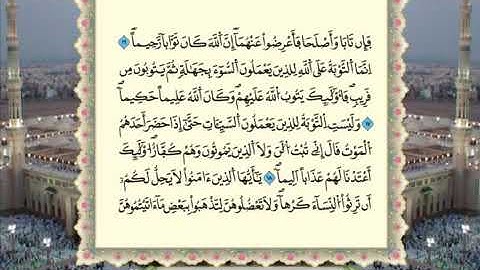 فَإِن تَابَا وَأَصْلَحَا فَأَعْرِضُوا۟ عَنْهُمَآ إِنَّ ٱللَّهَ كَانَ تَوَّابًا رَّحِيمًا ١٦
إِنَّمَا ٱلتَّوْبَةُ عَلَى ٱللَّهِ لِلَّذِينَ يَعْمَلُونَ ٱلسُّوٓءَ بِجَهَٰلَةٍ ثُمَّ يَتُوبُونَ مِن
قَرِيبٍ فَأُو۟لَٰٓئِكَ يَتُوبُ ٱللَّهُ عَلَيْهِمْ وَكَانَ ٱللَّهُ عَلِيمًا حَكِيمًا
١٧ وَلَيْسَتِ ٱلتَّوْبَةُ لِلَّذِينَ يَعْمَلُونَ ٱلسَّيِّـَٔاتِ حَتَّىٰٓ إِذَا حَضَرَ أَحَدَهُمُ
ٱلْمَوْتُ قَالَ إِنِّى تُبْتُ ٱلَٰٔنَ وَلَا ٱلَّذِينَ يَمُوتُونَ وَهُمْ كُفَّارٌ أُو۟لَٰٓئِكَ
أَعْتَدْنَا لَهُمْ عَذَابًا أَلِيمًا ١٨ يَٰٓأَيُّهَا ٱلَّذِينَ ءَامَنُوا۟ لَا يَحِلُّ لَكُمْ
أَن تَرِثُوا۟ ٱلنِّسَآءَ كَرْهًا وَلَا تَعْضُلُوهُنَّ لِتَذْهَبُوا۟ بِبَعْضِ مَآ ءَاتَيْتُمُوهُنَّ